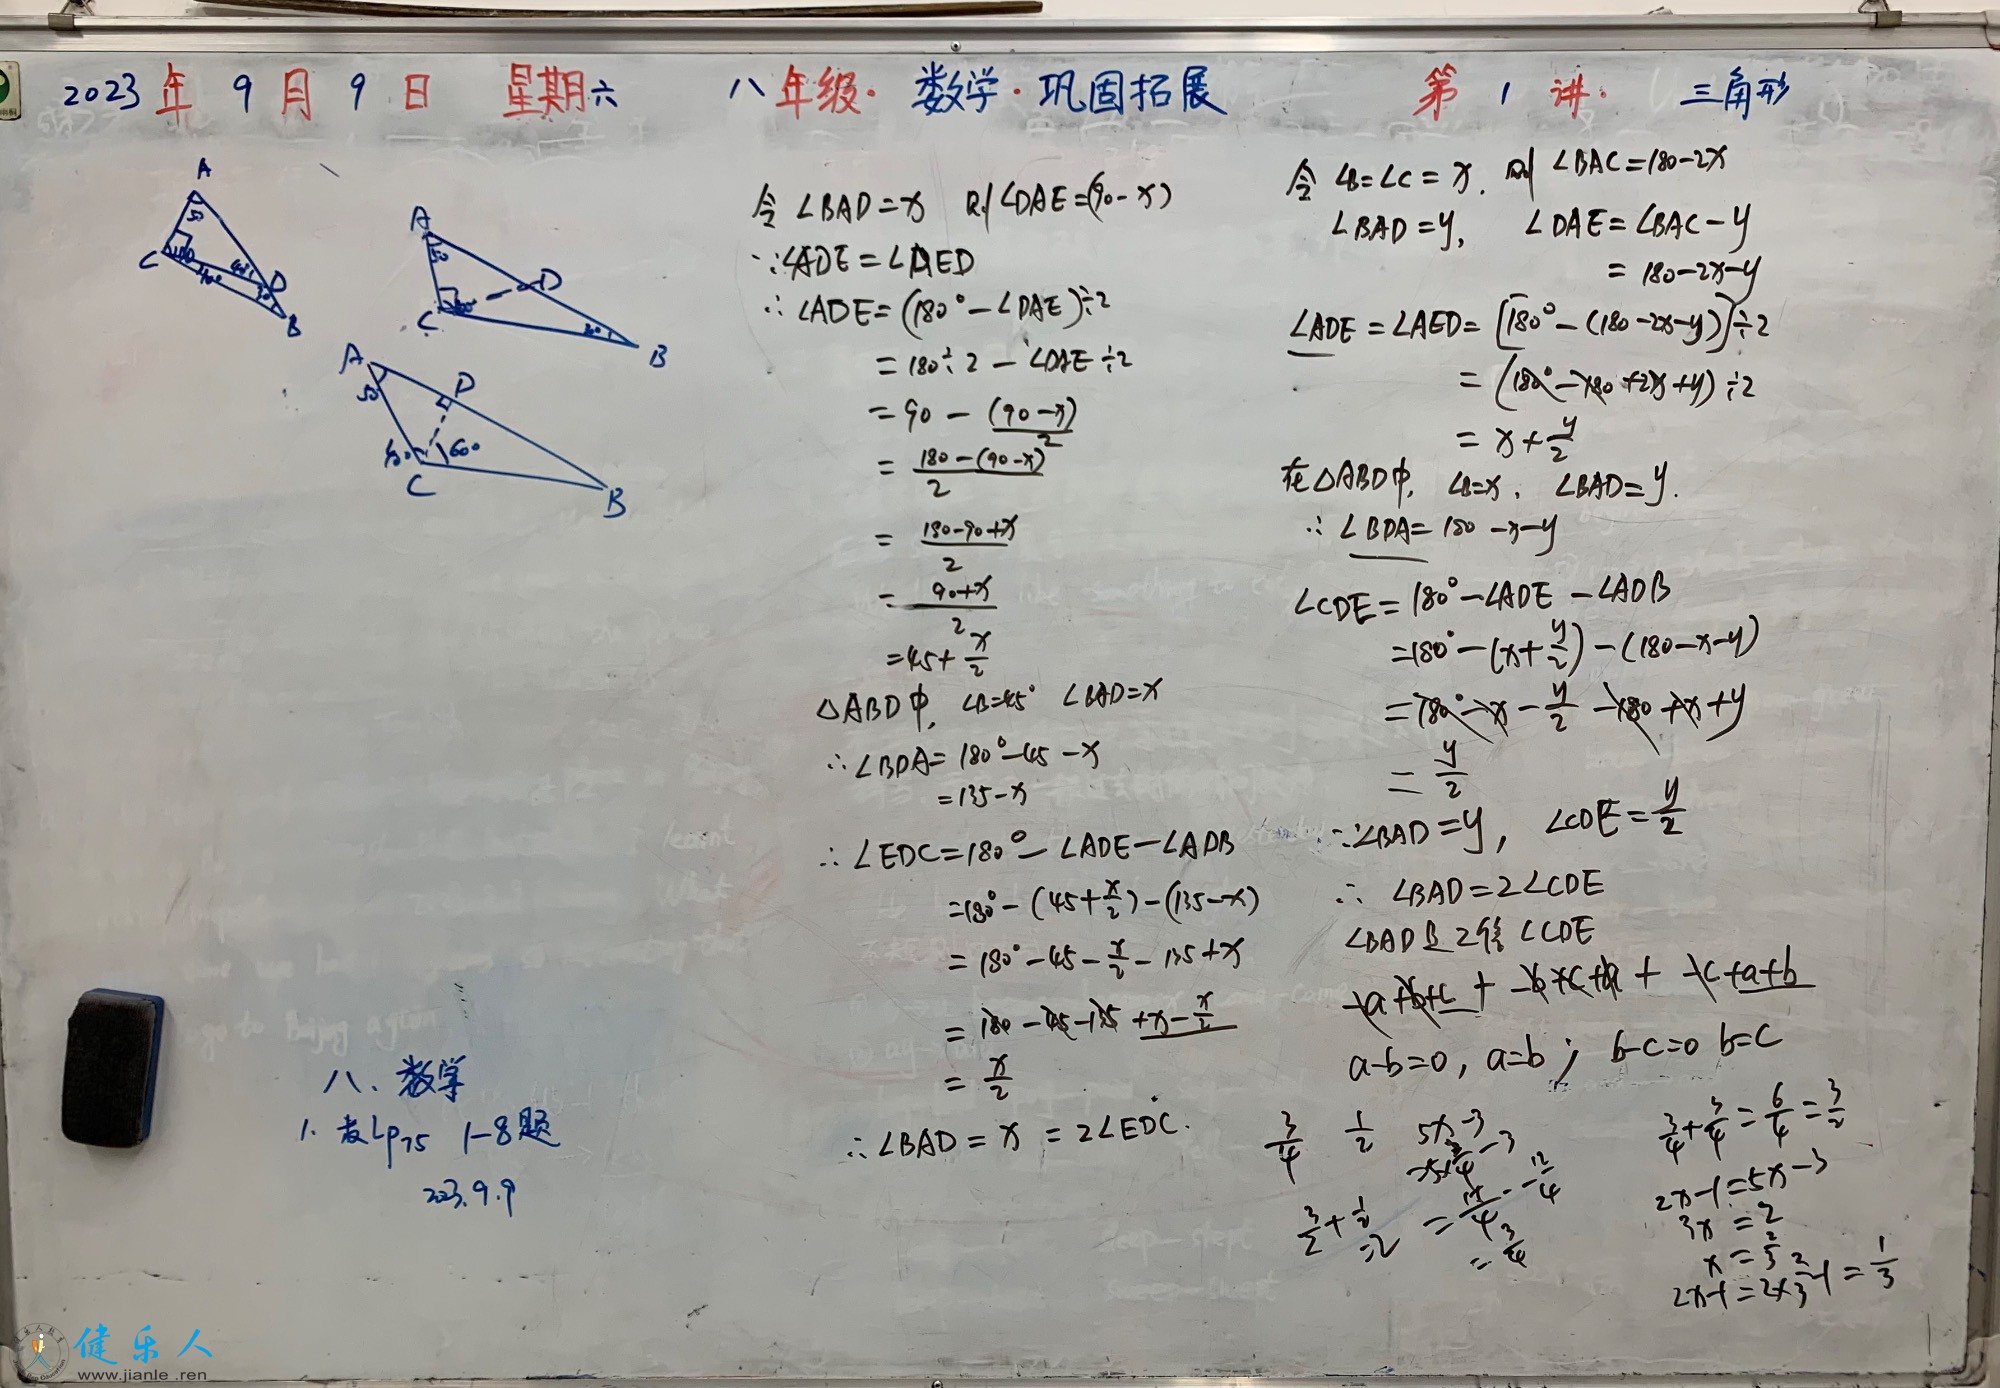 2023年9月9日 星期六 八年级·数学·巩固拓展 第1讲· 三角形
A
50
C
100
40°
40°
D
30°
B
A
50
D
C
B
A
50
D
60°
C
B
八、数学
1-8题
2023.9.9
令∠BAD=x 则∠DAE=(90-x)
∵∠ADE=∠AED
∴∠ADE=(180°-∠DAE)÷2
=180÷2-∠DAE÷2
=90-(90-x)/2
=180-(90-x)/2
=180-90+x/2
=90+x/2
=45+x/2
△ABD中,∠B=45° ∠BAD=x
∴∠BDA=180°-45-x
=135-x
∴∠EDC=180°-∠ADE-∠ADB
=180°-(45+x/2)-(135-x)
=180°-45-x/2-135+x
=180-45-135+x-x/2
=x/2
∴∠BAD=x=2∠EDC.
令∠B=∠C=x. 则∠BAC=180-2x
∠BAD=y, ∠DAE=∠BAC-y
=180-2x-y
∠ADE=∠AED=[180°-(180-2x-y)]÷2
=(180°-180+2x+y)÷2
=x+y/2
在△ABD中,∠B=x,∠BAD=y.
∴∠BDA=180-x-y
∠CDE=180°-∠ADE-∠ADB
=180°-(x+y/2)-(180-x-y)
=180°-x-y/2-180+x+y
=y/2
∵∠BAD=y, ∠CDE=y/2
∴∠BAD=2∠CDE
∠BAD是2倍∠CDE
-a+b+c+-b+c+a+-c+a+b
a-b=0, a=b; b-c=0 b=c
3/4 1/2 5x-3
3/2+1/2
=2
=3/4
3/4+3/4=6/4=3/2
2x-1=5x-3
3x=2
x=2/3
2x-1=2×2/3-1=1/3
健乐人
www.jianle.ren